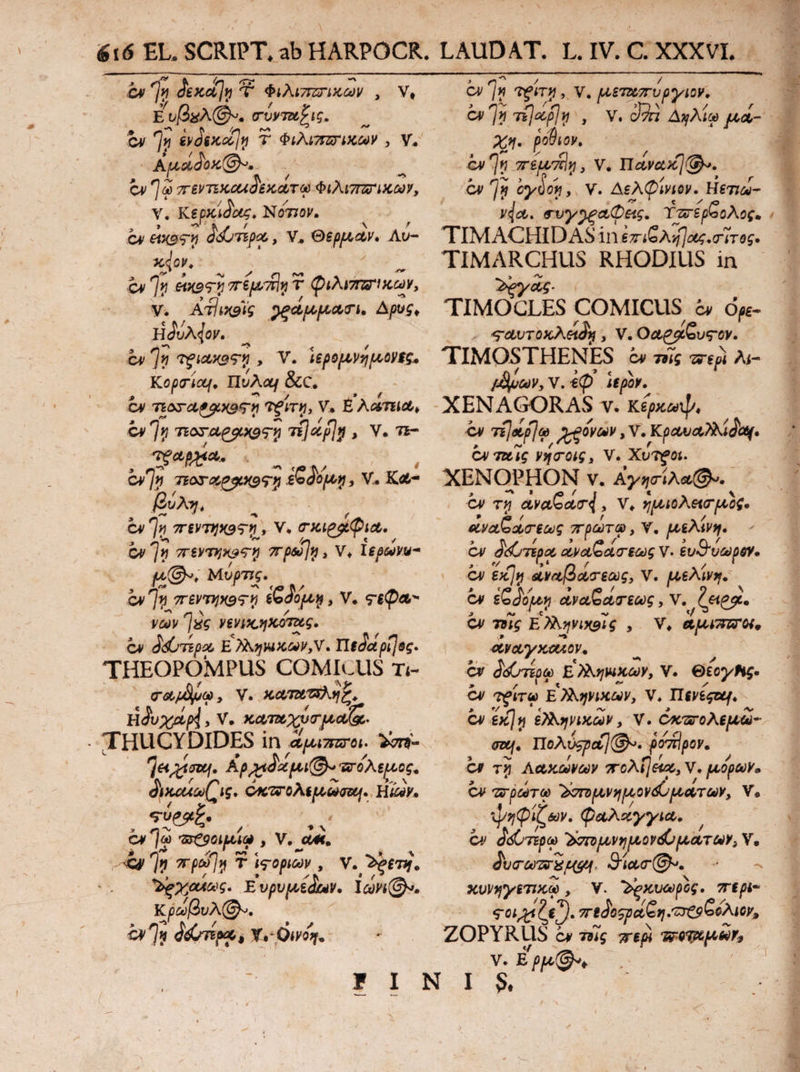 616 EL. SCRIPT. ab HARPOCR. LAUDAT. L. IV. C. XXXVI.
ἐν τῇ δεκάτῃ τ Φιλιππικῶν , V.
Εὔβουλος. σύνταξις.
ἐν τῇ ἑνδεκάτῃ τ Φιλιππικῶν , V.
Ἀμάδοκος.
ἐν τῷ πεντεκαιδεκάτῳ Φιλιππικῶν,
V. Κερκίδας. Νότιον.
ἐν εἰκοστῇ δευτέρᾳ, V. Θερμάν. Λυ-
κ
ἐν τῇ εἰκοστῇ πέμπτῃ τ φιλιππικῶν,
V. Ἀττικοῖς γράμμασι. Δρυς.
Ἡδύλειον.
ἐν τῇ τριακοστῇ , V. ἱερομνήμονες.
Κορσιαί. Πύλαι &c.
ἐν τεσσαρακοστῇ τρίτῃ, V. Ἐλάτεια.
ἐν τῇ τεσσαρακοστῇ τετάρτῃ , V. τε-
τραρχία.
ἐν τῇ τεσσαρακοστῇ ἑβδόμῃ, V. Κα-
βύλη.
ἐν τῇ πεντηκοστῇ, V. σκιράφια.
ἐν τῇ πεντηκοστῇ πρώτῃ, V. Ἱερώνυ-
μος. Μύρτις.
ἐν τῇ πεντηκοστῇ ἑβδόμῃ, V. στεφα-
νων τοὺς νενικηκότας.
ἐν δευτέρᾳ Ἑλληνικῶν, V. Πεδάριτος.
THEOPOMPUS COMICUS Τι-
σαμενῷ, V. καταπλήξ
Ἡδυχάρει, V. καταχύσματα.
THUCYDIDES in ἄμιπποι. ἀπο-
τειχίσαι. Ἀρχιδάμιος πόλεμος.
δικαίωσις. ἐκπολεμῶσαι. Ἠιών.
στύραξ.
ἐν τῷ προοιμίῳ , V.
ἐν τῇ πρώτῃ τ ἱστοριῶν , V. ἀρετή.
ἀρχαίως. Εὐρυμέδων. Ἴωνιος.
Κρώβυλος.
ἐν τῇ δευτέρᾳ, V. Οἰνόη.
ἐν τῇ τρίτῃ, V. μεταπύργιον.
ἐν τῇ τετάρτῃ , V. ἐπὶ Δηλίῳ μά-
χη. ῥόθιον.
ἐν τῇ πέμπτῃ, V. Πάνακτος.
ἐν τῇ ὀγδόῃ, V. Δελφίνιον. Ηετιώ-
νεια. συγγραφεῖς. Ὑπέρβολος.
TIMACHIDAS in ἐπιβλῆτας. σῖτος.
TIMARCHUS RHODIUS in
ἀργάς.
TIMOCLES COMICUS ἐν Ὀρε-
σταυτοκλείδῃ , V. Ὀαράβυστον.
TIMOSTHENES ἐν τοῖς περὶ λι-
μένων, V. ἐφ ἱερόν.
XENAGORAS V. Κέρκωψ.
ἐν τετάρτῳ χρόνων, V. Κραυαλλίδαι.
ἐν ταῖς νήσοις, V. Χύτροι.
XENOPHON V. Ἀγησίλαος.
ἐν τῇ ἀναβάσει, V. ἡμιολειασμός.
ἀναβάσεως πρώτῳ, V. μελίνη.
ἐν δευτέρᾳ ἀναβάσεως V. εὐθύωρον.
ἐν ἕκτῃ ἀναβάσεως, V. μελίνη.
ἐν ἑβδόμῃ ἀναβάσεως, V. ζειρά.
ἐν τοῖς Ἑλληνικοῖς , V. ἄμιπποι.
ἀναγκαῖον.
ἐν δευτέρῳ Ἑλληνικῶν, V. Θέογνις.
ἐν τρίτῳ Ἑλληνικῶν, V. Πενέσται.
ἐν ἕκτῃ ἑλληνικῶν, V. ἐκπολεμῶ-
σαι. Πολύστρατος. ῥόπτρον.
ἐν τῇ Λακώνων πολιτείᾳ, V. μόρων.
ἐν πρώτῳ ἀπομνημονευμάτων, V.
ψηφίζων. φαλάγγια.
ἐν δευτέρῳ ἀπομνημονευμάτων, V.
δυσωποῦμαι. θίασος.
κυνηγετικῷ, V. ἀρκυωρός. περι-
στοιχίζεται. ποδοστράβη. προβόλιον.
ZOPYRUS ἐν τοῖς περὶ ποταμῶν,
V. Ἑρμος.
FINIS.